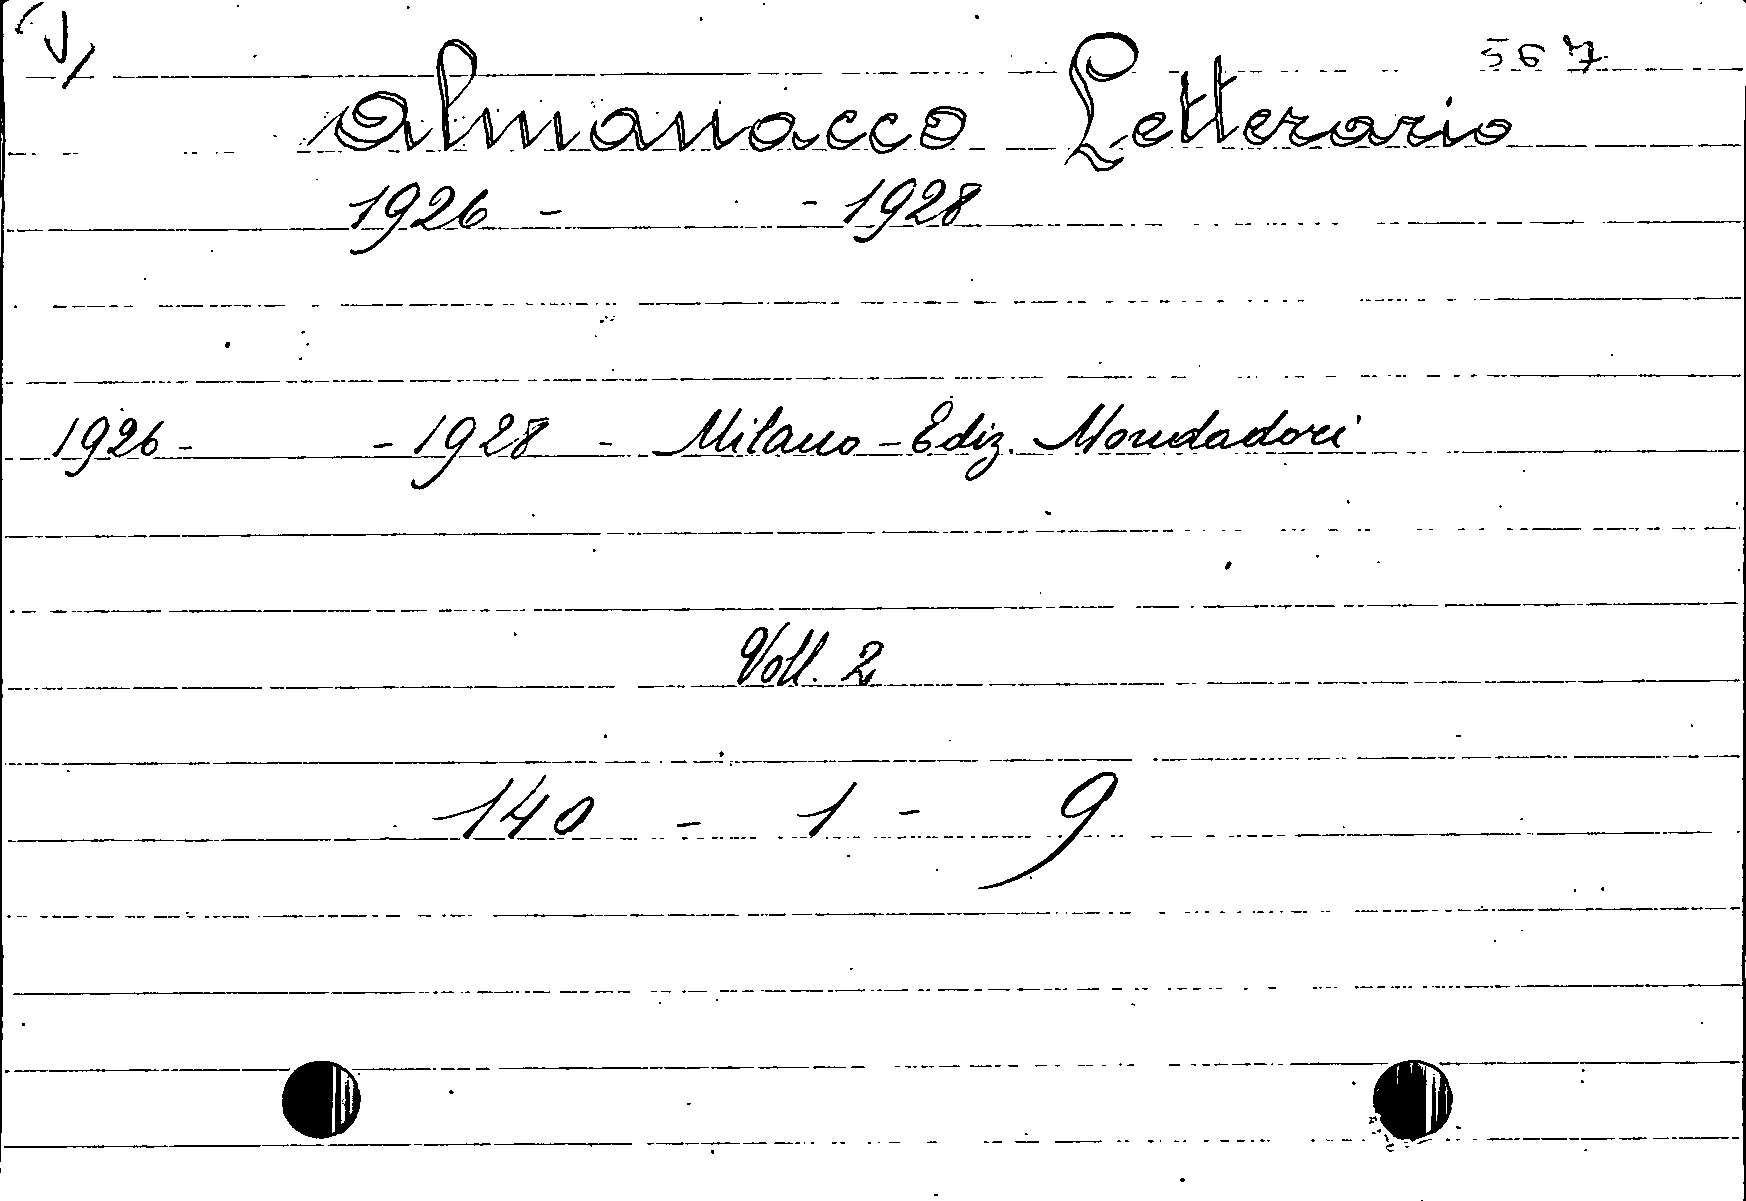 567
Almanacco Letterario
1926 - - 1928
1926 - - 1928 - Milano - Ediz. Mondadori
Voll. 2
140 - 1 - 9